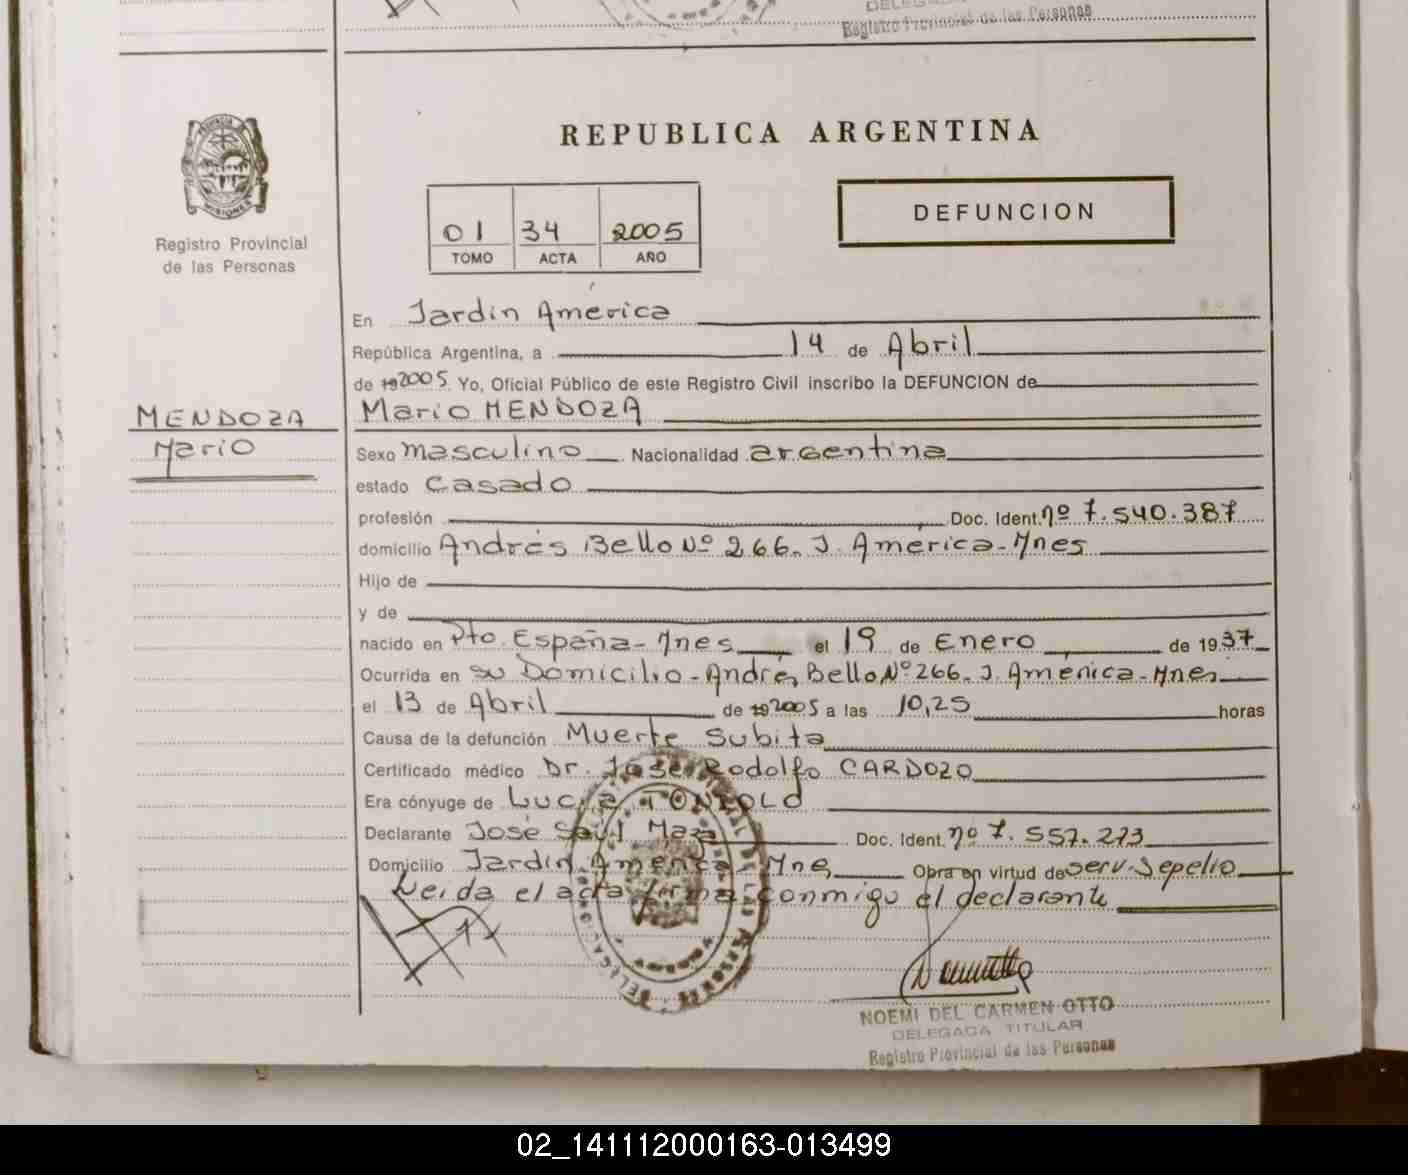 DELEGADA
Registro Provincial de las Personas
REPUBLICA ARGENTINA
PROVINCIA
MISIONES
Registro Provincial
de las Personas
01 34 2005
TOMO ACTA AÑO
DEFUNCION
En Jardín América
República Argentina, a 14 de Abril
de 19 2005 Yo, Oficial Público de este Registro Civil inscribo la DEFUNCION de
MENDOZA
Mario MENDOZA
Mario
Sexo masculino Nacionalidad argentina
estado Casado
profesión Doc. Ident. nº 7.540.387
domicilio Andrés Bello Nº 266. J. América-Mnes
Hijo de
y de
nacido en Pto. España-Mnes el 19 de Enero de 1937
Ocurrida en su Domicilio-Andrés Bello Nº 266. J. América-Mnes
el 13 de Abril de 19 2005 a las 10,25 horas
Causa de la defunción Muerte Subita
Certificado médico Dr. José Rodolfo CARDOZO
Era cónyuge de
Declarante José Saul Maza Doc. Ident. nº 7.557.273
Domicilio Jardín América Mnes Obra en virtud de serv. Sepelio
Leida el acta firma conmigo el declarante
NOEMI DEL CARMEN OTTO
DELEGADA TITULAR
Registro Provincial de las Personas
02_141112000163-013499